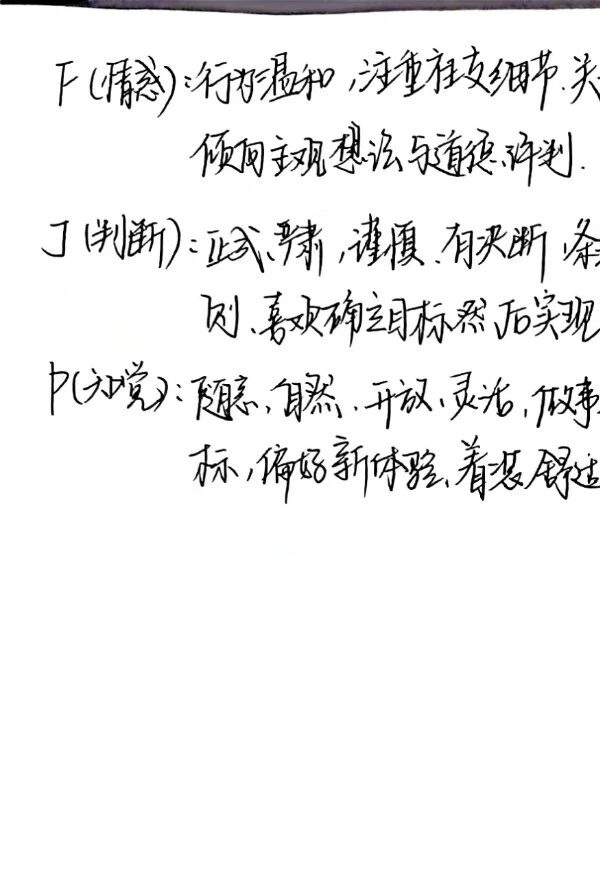 F(情感):行为温和,注重社交细节、关
倾向主观想法与道德评判.
J(判断):正式、严肃,谨慎、有决断、条
则、喜欢确立目标然后实现
P(知觉):随意、自然、开放、灵活,做事
标,偏好新体验、着装舒适